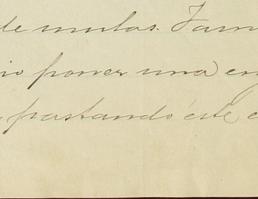 de mulas. Fam
io poner una en
pastando este c